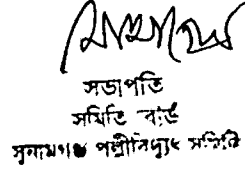 সভাপতি
সমিতি বোর্ড
সুনামগঞ্জ পল্লীবিদ্যুৎ সমিতি